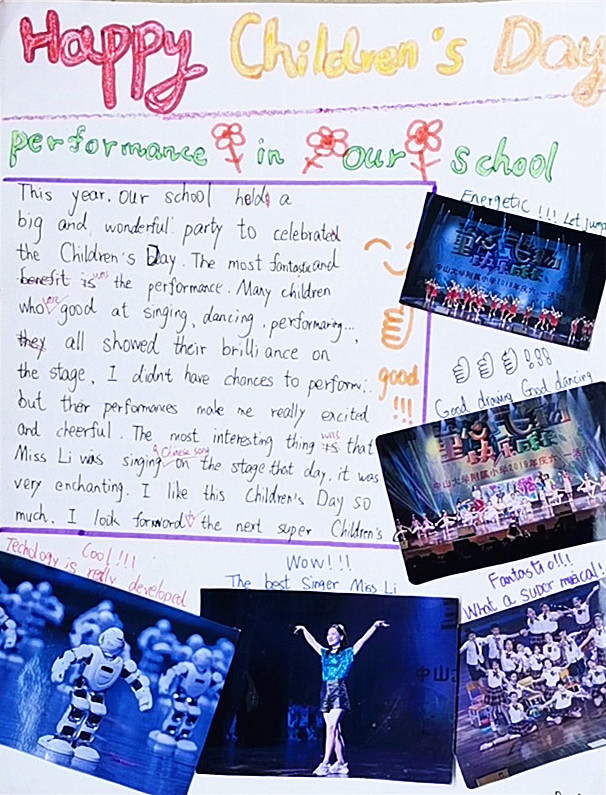 Happy Children's Day
performance in our school
This year. Our school held a
big and wonderful party to celebrated
the Children's Day. The most fantastic and
benefit is was the performance. Many children
who were good at singing, dancing, performaring...,
they all showed their brilliance on
the stage. I didn't have chances to perform.
but their performances make me really excited
and cheerful. The most interesting thing is was that
Miss Li was singing a Chinese song on the stage that day. it was
very enchanting. I like this Children's Day so
much. I look forward to the next super Children's
good
!!!
Energetic !!! Let jump
中山大学附属小学2019年庆六一活动
!!!
Good drawing Good dancing
中山大学附属小学2019年庆六一活动
Cool!!!
Techology is really developed
Wow!!!
The best Singer Miss Li
中山
Fantastic!!!
What a super musical!